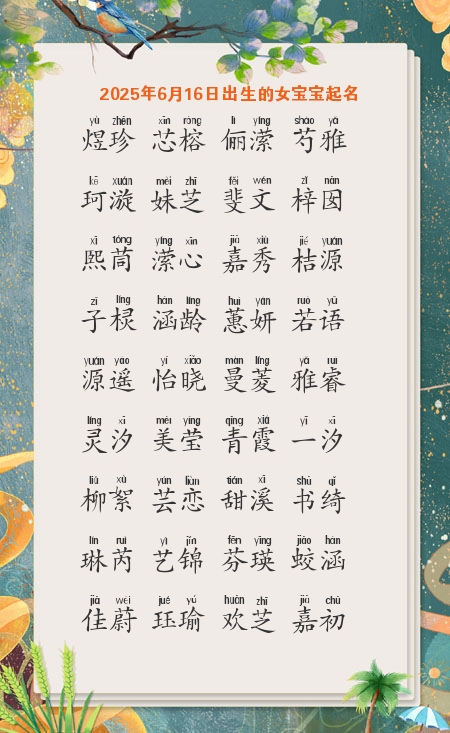 2025年6月16日出生的女宝宝起名
yù zhēn xīn róng lì yíng sháo yǎ
煜珍 芯榕 俪潆 芍雅
kē xuán mèi zhī fěi wén zǐ nān
珂漩 妹芝 斐文 梓囡
xī tóng yíng xīn jiā xiù jié yuán
熙茼 潆心 嘉秀 桔源
zǐ líng hán líng huì yán ruò yǔ
子棂 涵龄 蕙妍 若语
yuán yáo yí xiǎo màn líng yǎ ruì
源遥 怡晓 曼菱 雅睿
líng xī měi yíng qīng xiá yī xī
灵汐 美莹 青霞 一汐
liǔ xù yún liàn tián xī shū qǐ
柳絮 芸恋 甜溪 书绮
lín ruì yì jǐn fēn yīng jiāo hán
琳芮 艺锦 芬瑛 蛟涵
jiā wèi jué yú huān zhī jiā chū
佳蔚 珏瑜 欢芝 嘉初